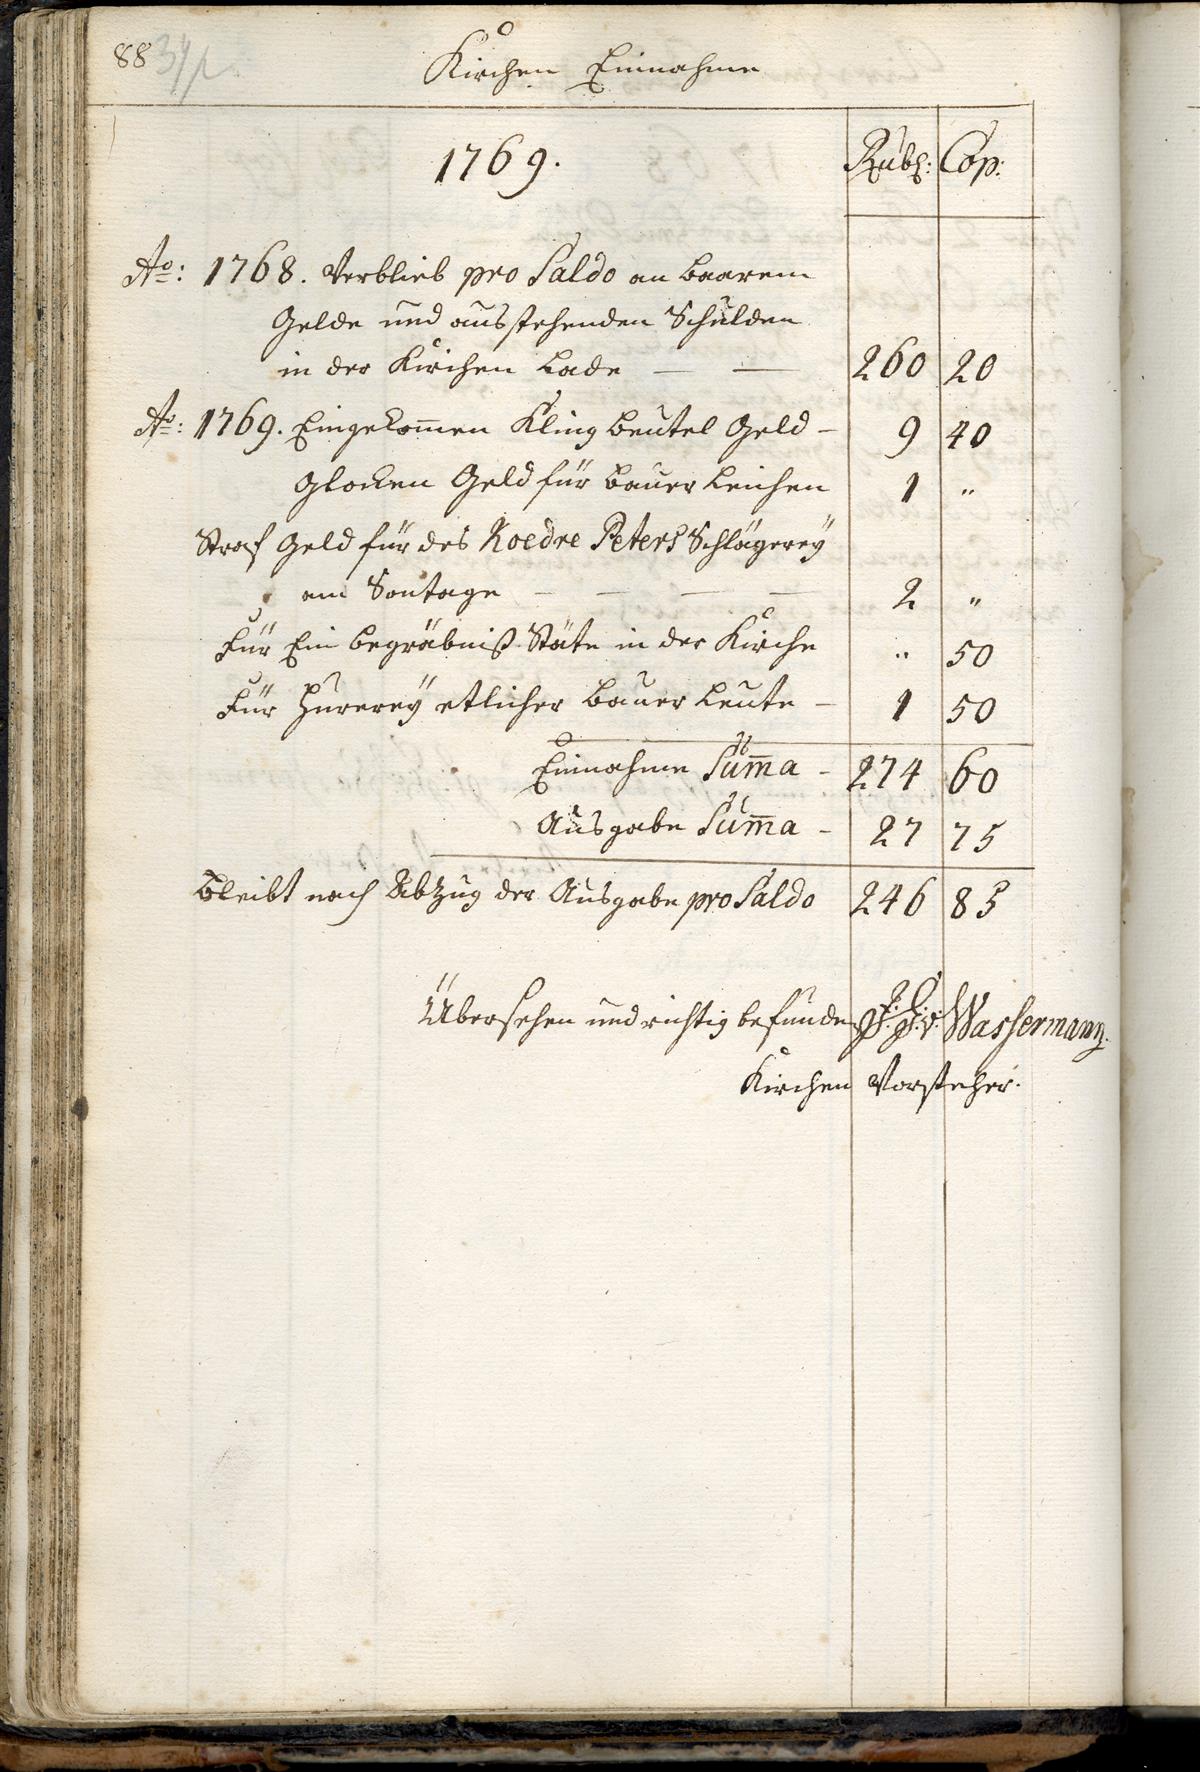 88
Kirchen Einnahme
1769. Rubl: Cop:
Ao: 1768. Verblieb pro Saldo an baarem
Gelde und ausstehenden Schulden
in der Kirchen Lade — — 260 20
Ao: 1769. Eingekom̄en Kling beutel Geld – 9 40
Glocken Geld für bauer Leichen 1 "
Straf Geld für des Koedre Peters Schlägereÿ
am Sontage — — — — 2 "
Für Ein begräbniß Stäte in der Kirche " 50
Für Hurereÿ etlicher bauer Leute – 1 50
Einnahme Sum̄a – 274 60
Ausgabe Sum̄a – 27 75
Bleibt nach Abzug der Ausgabe pro Saldo 246 85
Übersehen und richtig befunden v. Wassermann.
Kirchen Vorsteher.